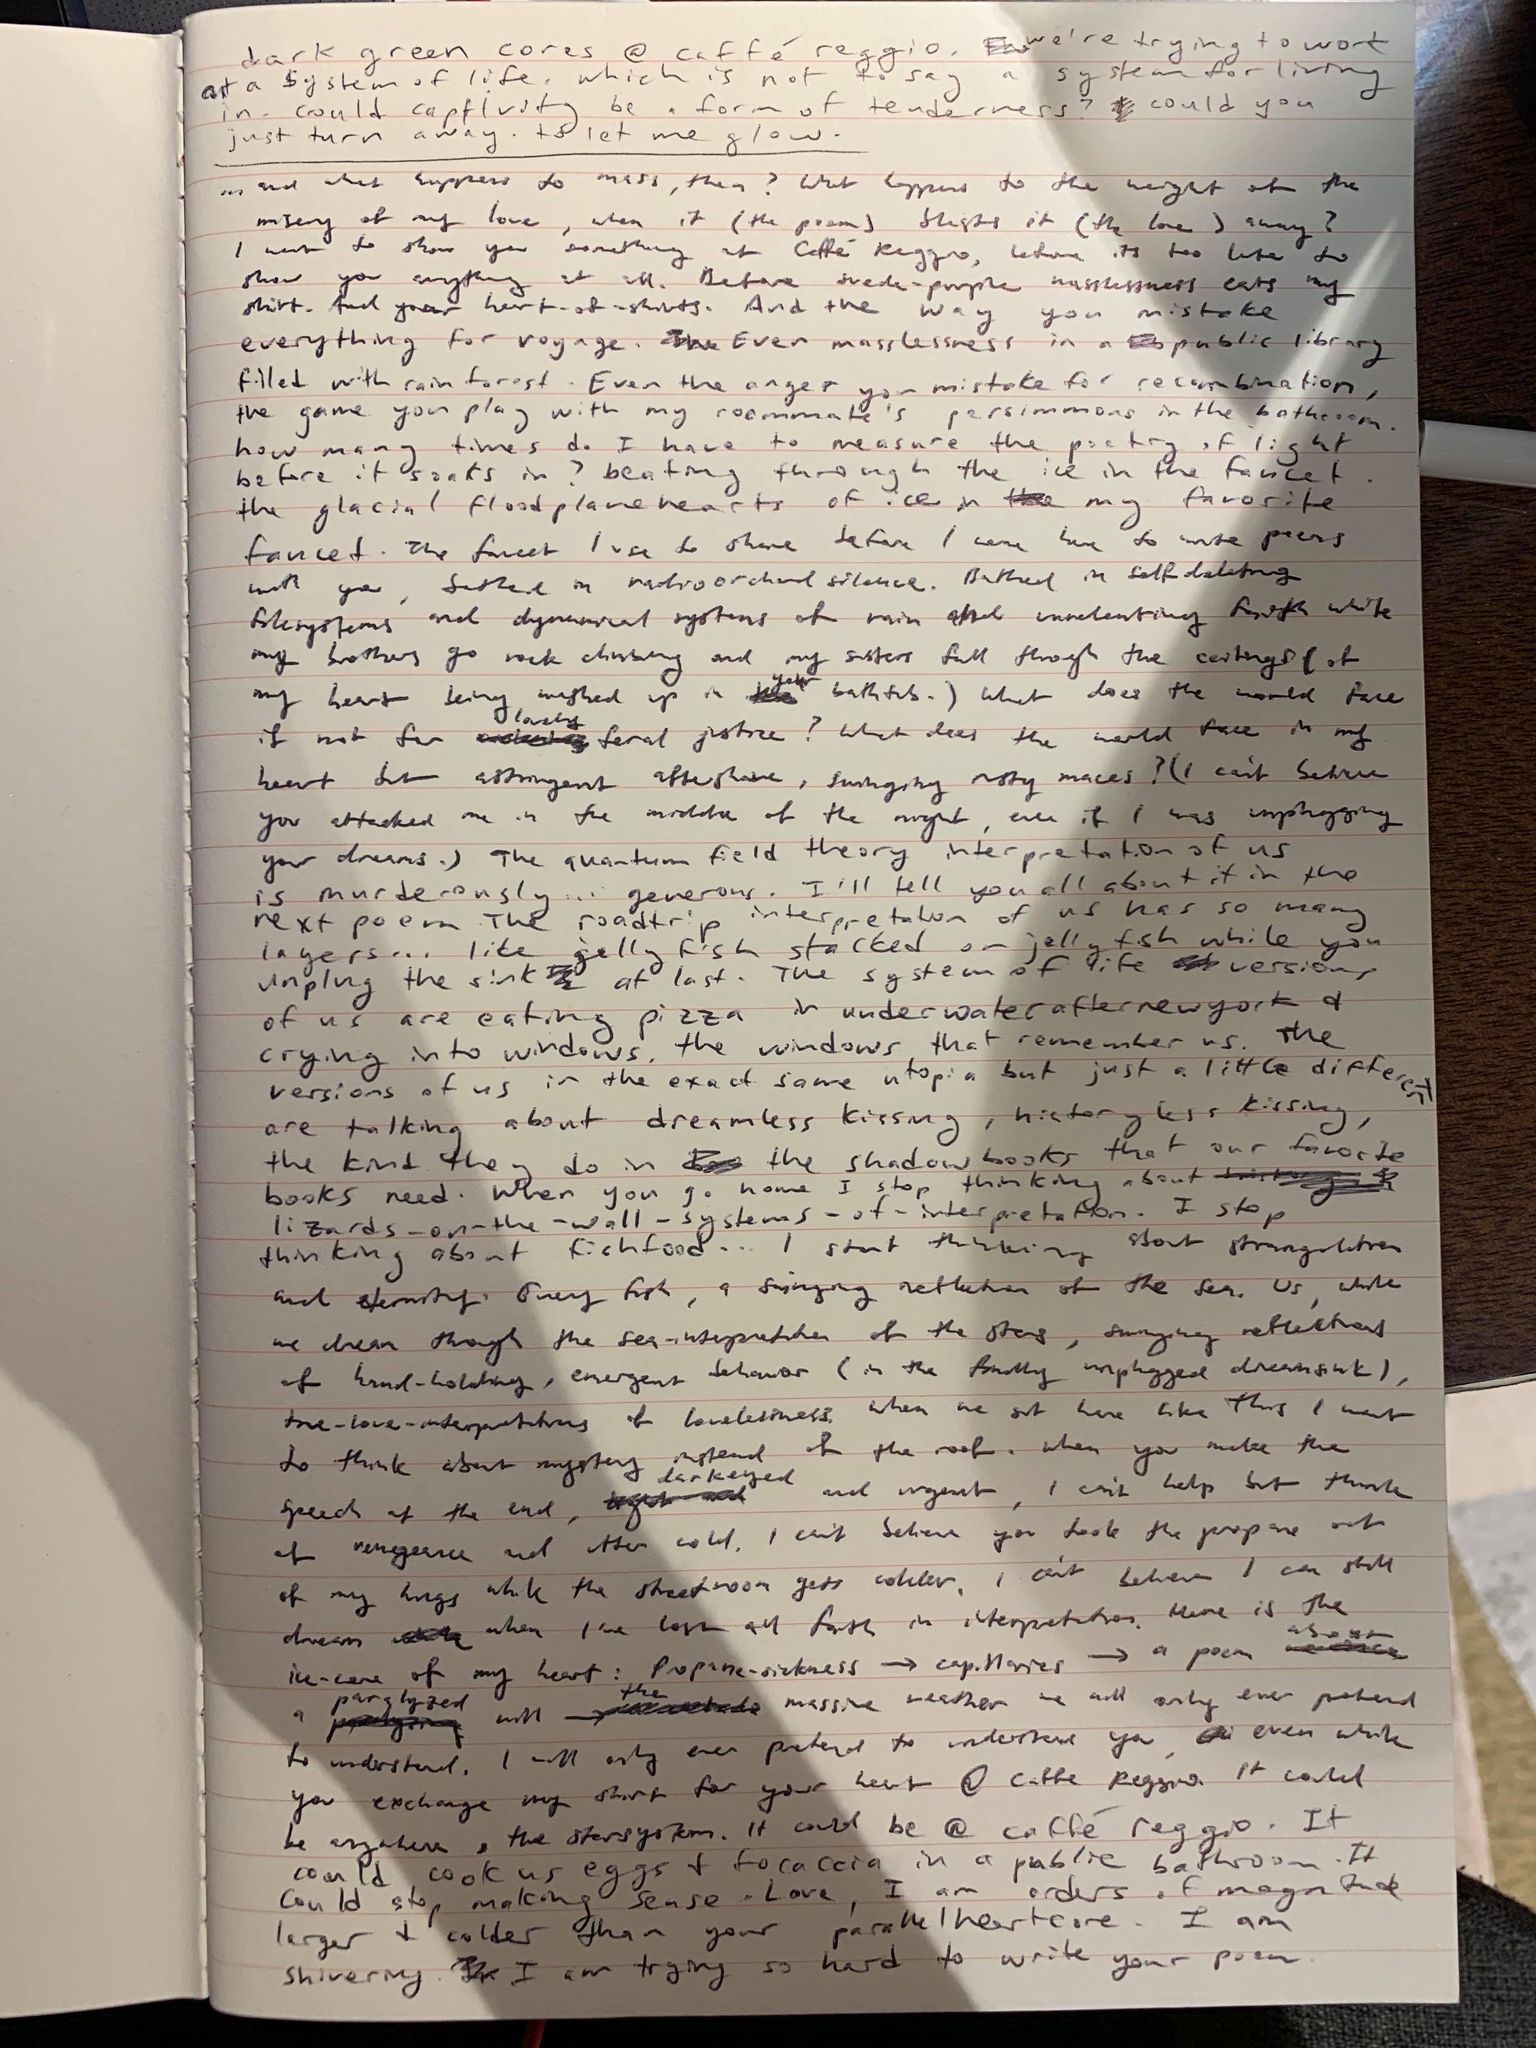 dark green cores @ caffé reggio. we're trying to work
at a system of life. which is not to say a system for living
in. could captivity be a form of tenderness? could you
just turn away. to let me glow.
... and what happens to mass, then? What happens to the weight of the
misery of my love, when it (the poem) blasts it (the love) away?
I want to show you something at Caffé Reggio, before its too late to
show you anything at all. Before suede-purple masslessness eats my
shirt. And your heart-of-shirts. And the way you mistake
everything for voyage. Even masslessness in a public library
filled with rainforest. Even the anger you mistake for recombination,
the game you play with my roommate's persimmons in the bathroom.
how many times do I have to measure the poetry of light
before it soaks in? beating through the ice in the faucet.
the glacial floodplanehearts of ice in my favorite
faucet. The faucet I use to shave before I come here to write poems
with you, bathed in radioorchard silence. Bathed in self deleting
filesystems and dynamical systems of rain and unrelenting faith while
my brothers go rock climbing and my sisters fall through the ceilings (of
my heart being washed up in your bathtub.) What does the world face
if not for lovely feral justice? What does the world face in my
heart but astringent aftershave, swinging rusty maces? (I can't believe
you attacked me in the middle of the night, even if I was unplugging
your dreams.) The quantum field theory interpretation of us
is murderously... generous. I'll tell you all about it in the
next poem. The roadtrip interpretation of us has so many
layers... like jellyfish stacked on jellyfish while you
unplug the sink at last. The system of life versions
of us are eating pizza in underwaterafternewyork &
crying into windows. the windows that remember us. The
versions of us in the exact same utopia but just a little different
are talking about dreamless kissing, historyless kissing,
the kind they do in the shadowbooks that our favorite
books need. When you go home I stop thinking about
lizards-on-the-wall-systems-of-interpretation. I stop
thinking about fishfood... I start thinking about strangulation
and eternity. Every fish, a swinging reflection of the sea. Us, while
we dream through the sea-interpretation of the stars, swinging reflections
of hand-holding, emergent behavior (in the finally unplugged dreamsink),
true-love-interpretations of lovelessness. When we sit here like this I want
to think about mystery instead of the roof. When you make the
speech at the end, darkeyed and urgent, I can't help but think
of vengeance and utter cold. I can't believe you took the propane out
of my lungs while the streetroom gets colder. I can't believe I can still
dream when I've lost all faith in interpretation. Here is the
ice-core of my heart: Propane-sickness → capillaries → a poem about
a paralyzed will → the massive weather we will only ever pretend
to understand. I will only ever pretend to understand you, even while
you exchange my shirt for your heart @ Caffé Reggio. It could
be anywhere, the starsystem. It could be @ caffé reggio. It
could cook us eggs & focaccia in a public bathroom. It
could stop making sense. Love, I am orders of magnitude
larger & colder than your parallelheartcore. I am
shivering. I am trying so hard to write your poem.